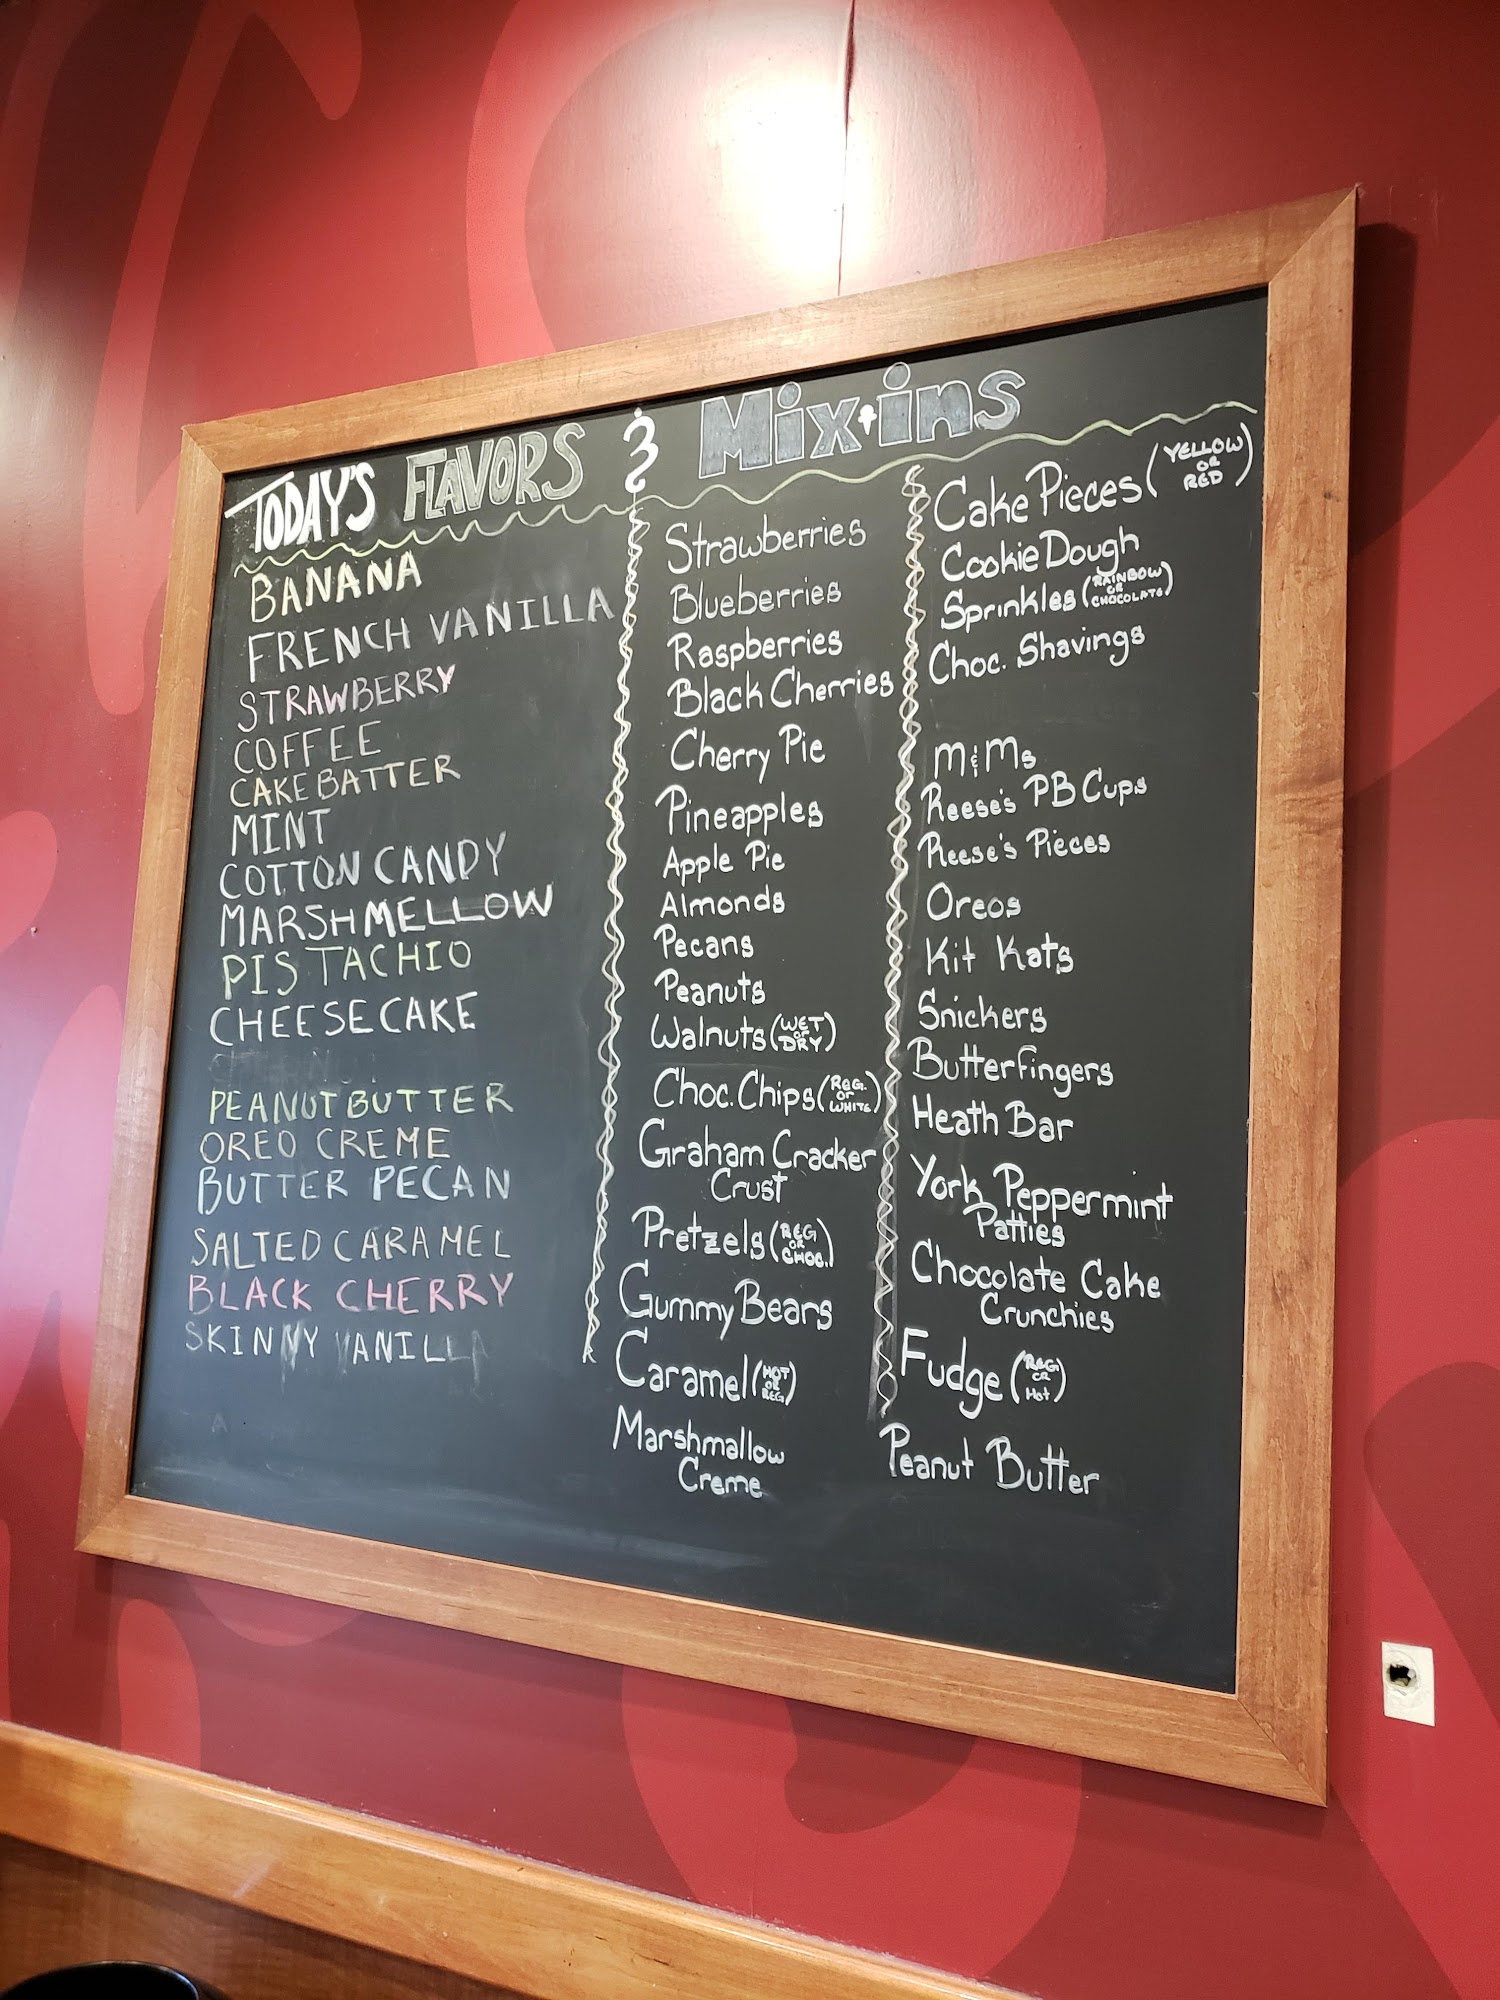 TODAY'S FLAVORS & Mix-ins
BANANA
FRENCH VANILLA
STRAWBERRY
COFFEE
CAKE BATTER
MINT
COTTON CANDY
MARSHMELLOW
PISTACHIO
CHEESECAKE
PEANUT BUTTER
OREO CREME
BUTTER PECAN
SALTED CARAMEL
BLACK CHERRY
SKINNY VANILLA
Strawberries
Blueberries
Raspberries
Black Cherries
Cherry Pie
Pineapples
Apple Pie
Almonds
Pecans
Peanuts
Walnuts (WET OR DRY)
Choc. Chips (REG. OR WHITE)
Graham Cracker
Crust
Pretzels (REG OR CHOC.)
Gummy Bears
Caramel (HOT OR REG)
Marshmallow
Creme
Cake Pieces (YELLOW OR RED)
Cookie Dough
Sprinkles (RAINBOW OR CHOCOLATE)
Choc. Shavings
M&Ms
Reese's PB Cups
Reese's Pieces
Oreos
Kit Kats
Snickers
Butterfingers
Heath Bar
York Peppermint
Patties
Chocolate Cake
Crunchies
Fudge (REG OR Hot)
Peanut Butter